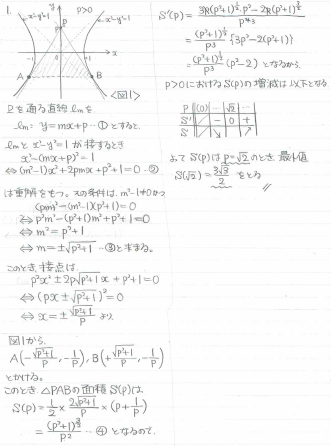 1.
x²-y²=-1
x²-y²=1
p>0
y
P
x
-1
1
A
B
<図1>
Pを通る直線lmを
lm: y=mx+p …① とすると、
lmとx²-y²=1が接するとき
x²-(mx+p)²=1
⇔(m²-1)x²+2pmx+p²+1=0 …②
は重解をもつ。その条件は、m²-1≠0かつ
(pm)²-(m²-1)(p²+1)=0
⇔p²m²-(p²+1)m²+p²+1=0
⇔m²=p²+1
⇔m=±√(p²+1) …③と求まる。
このとき、接点は、
p²x²±2p√(p²+1)x+p²+1=0
⇔(px±√(p²+1))²=0
⇔x=±√(p²+1)/p より
図1から、
A(-√(p²+1)/p, -1/p), B(+√(p²+1)/p, -1/p)
とかける。
このとき、△PABの面積S(p)は、
S(p)=1/2×2√(p²+1)/p×(p+1/p)
=(p²+1)^(3/2)/p² …④ となるので、
S'(p)=(3p(p²+1)^(1/2)·p²-2p(p²+1)^(3/2))/p⁴
=(p²+1)^(1/2)/p³{3p²-2(p²+1)}
=(p²+1)^(1/2)/p³(p²-2) となるから、
p>0におけるS(p)の増減は以下となる
P (0) … √2 …
S' - 0 +
S ↘ ↗
よってS(p)はp=√2のとき、最小値
S(√2)=3√3/2 をとる